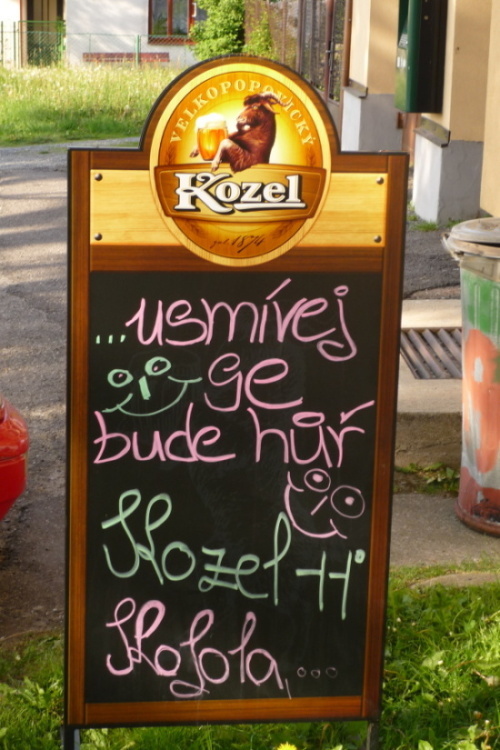 VELKOPOPOVICKÝ
Kozel
...usmívej
se
bude hůř
Kozel 11°
Kofola, ...